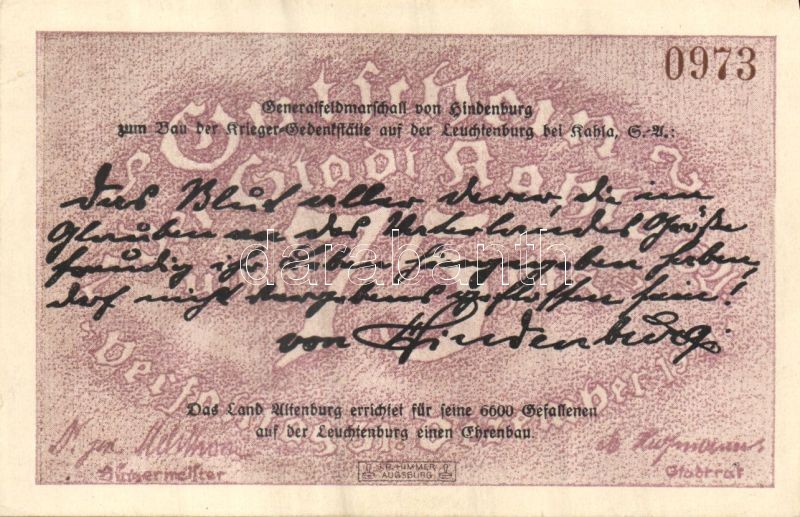 0973
Gutschein
Stadt
75
Generalfeldmarschall von Hindenburg
zum Bau der Krieger-Gedenkstätte auf der Leuchtenburg bei Kahla, S.-A.:
Das Blut aller derer, die im
Glauben an des Vaterlandes Größe
freudig ihr Leben hingegeben haben,
darf nicht vergebens geflossen sein!
von Hindenburg.
darabanth
Das Land Altenburg errichtet für seine 6600 Gefallenen
auf der Leuchtenburg einen Ehrenbau.
Bürgermeister
Stadtrat
J.P. HIMMER
AUGSBURG